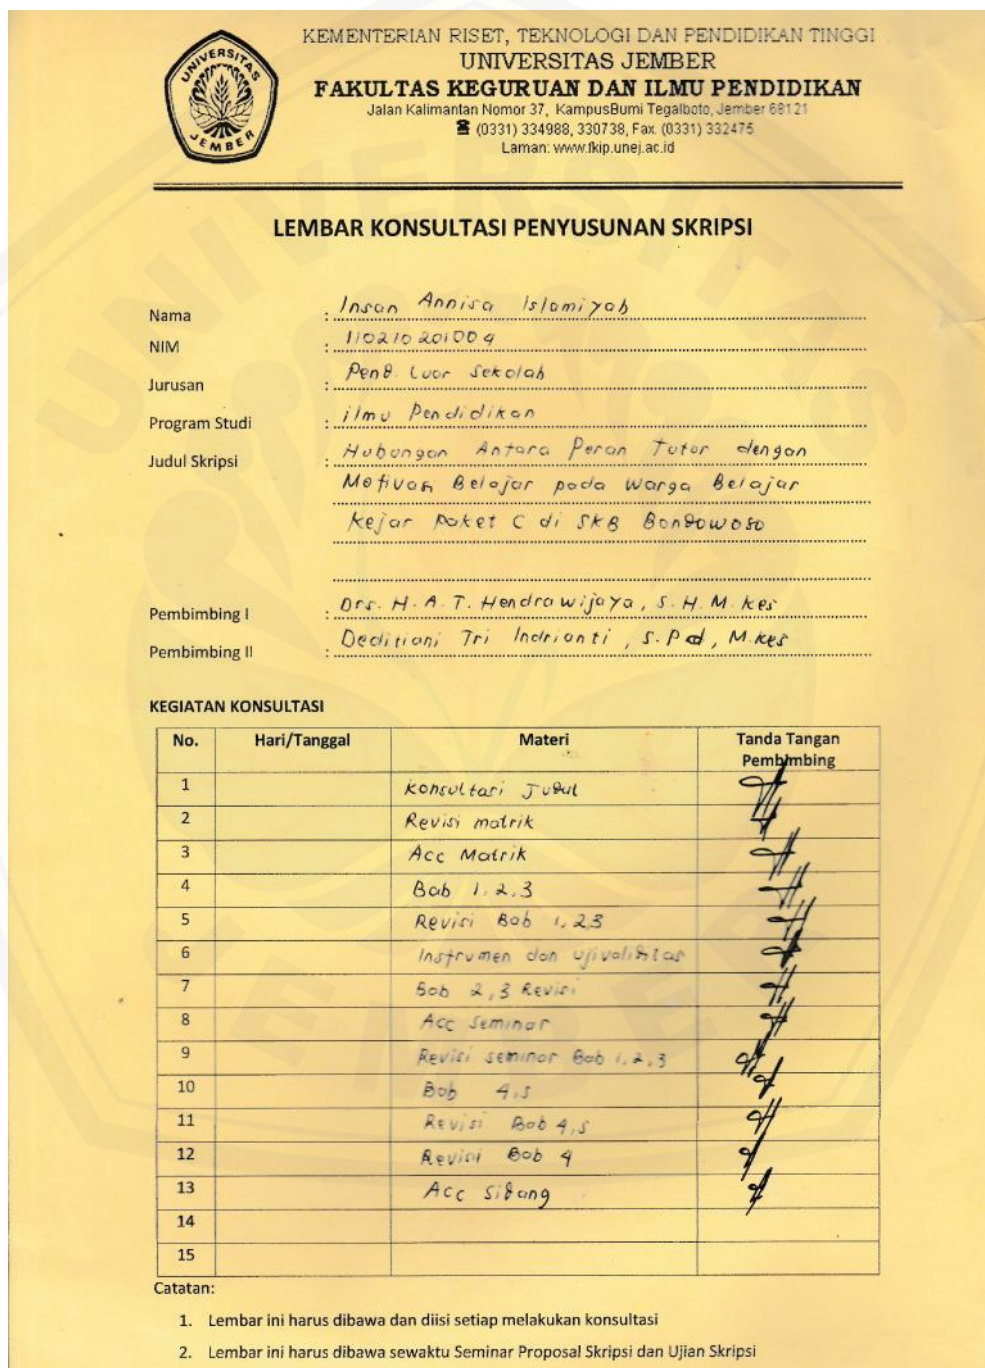 UNIVERSITAS
JEMBER
KEMENTERIAN RISET, TEKNOLOGI DAN PENDIDIKAN TINGGI
UNIVERSITAS JEMBER
FAKULTAS KEGURUAN DAN ILMU PENDIDIKAN
Jalan Kalimantan Nomor 37, KampusBumi Tegalboto, Jember 68121
☎ (0331) 334988, 330738, Fax. (0331) 332475
Laman: www.fkip.unej.ac.id
LEMBAR KONSULTASI PENYUSUNAN SKRIPSI
Nama : Insan Annisa Islamiyah
NIM : 110210201004
Jurusan : Pend. Luar Sekolah
Program Studi : ilmu Pendidikan
Judul Skripsi : Hubungan Antara Peran Tutor dengan
Motivasi Belajar pada Warga Belajar
Kejar Paket C di SKB Bondowoso
Pembimbing I : Drs. H. A. T. Hendrawijaya, S. H. M. Kes
Pembimbing II : Deditiani Tri Indrianti, S. Pd, M. Kes
KEGIATAN KONSULTASI
No. Hari/Tanggal Materi Tanda Tangan
Pembimbing
1 Konsultasi Judul
2 Revisi matrik
3 Acc Matrik
4 Bab 1, 2, 3
5 Revisi Bab 1, 2,3
6 Instrumen dan ujivaliditas
7 Bab 2, 3 Revisi
8 Acc Seminar
9 Revisi seminar Bab 1, 2, 3
10 Bab 4,5
11 Revisi Bab 4,5
12 Revisi Bab 4
13 Acc Sidang
14
15
Catatan:
1. Lembar ini harus dibawa dan diisi setiap melakukan konsultasi
2. Lembar ini harus dibawa sewaktu Seminar Proposal Skripsi dan Ujian Skripsi